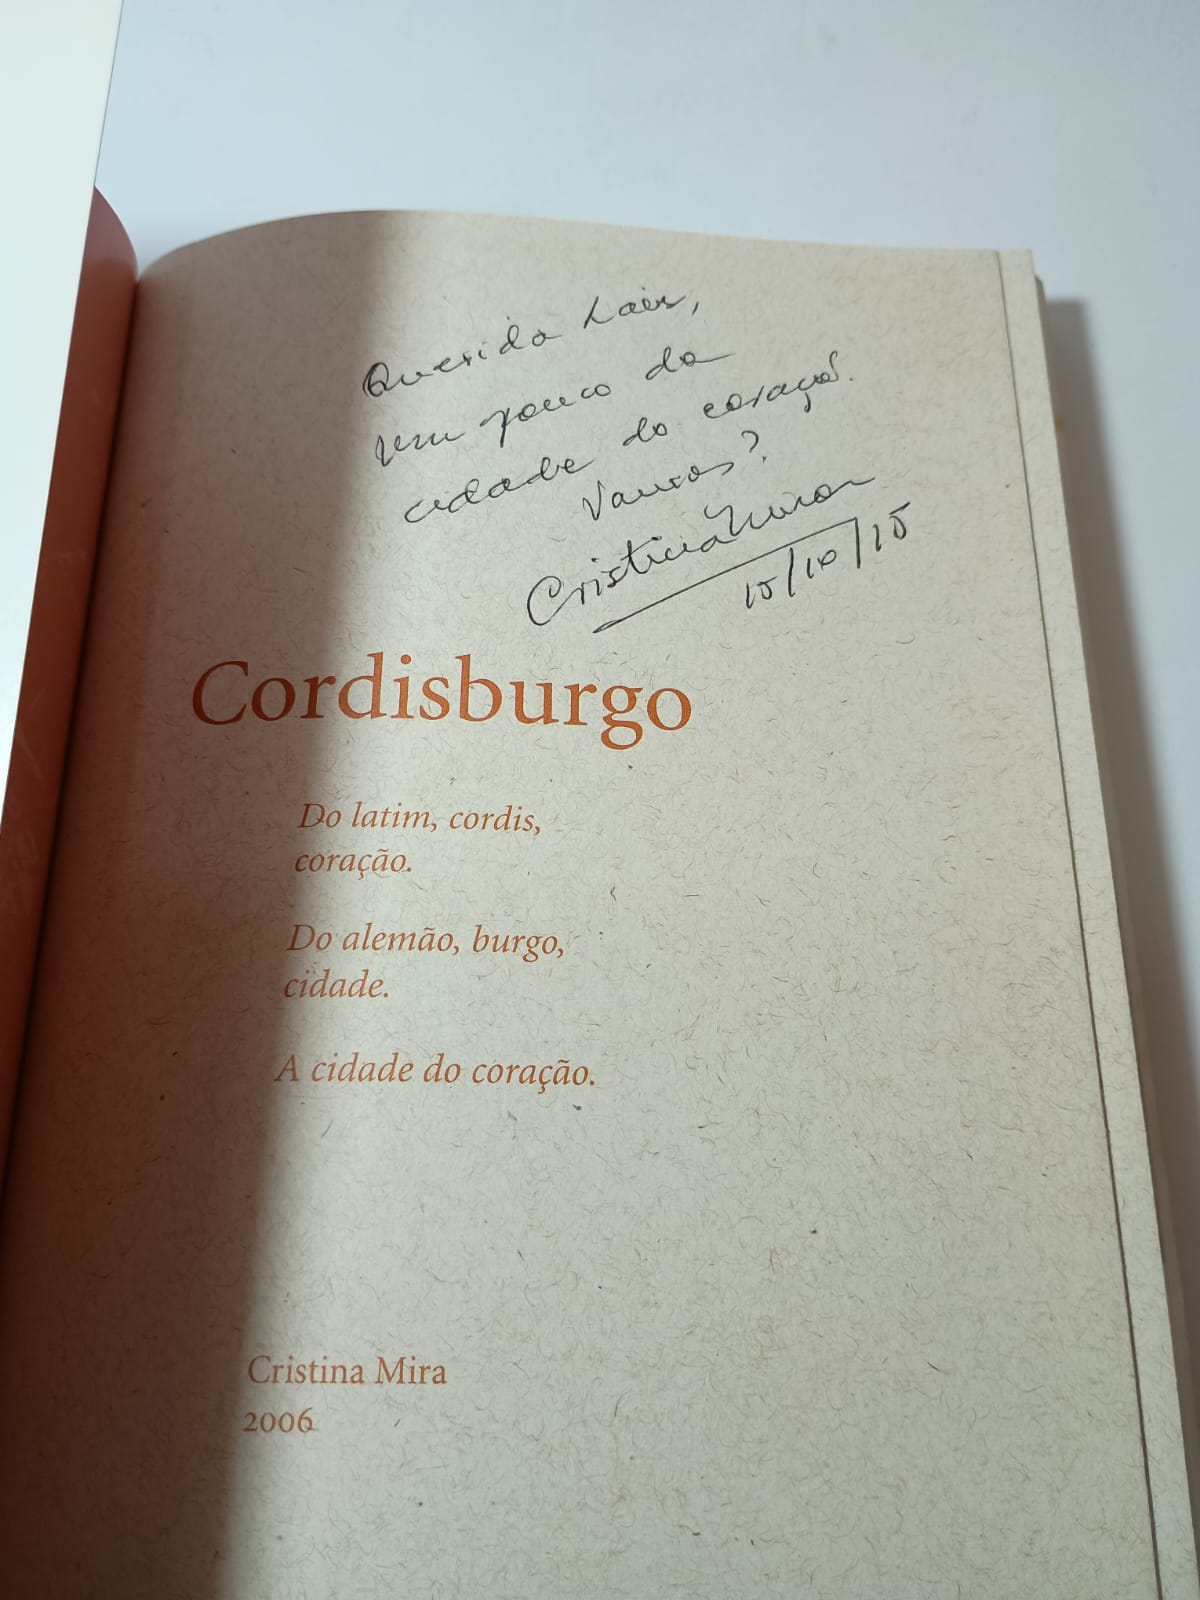 Querida Lais,
um pouco da
cidade do coração.
Vamos?
Cristina Mira
15/10/15
Cordisburgo
Do latim, cordis,
coração.
Do alemão, burgo,
cidade.
A cidade do coração.
Cristina Mira
2006